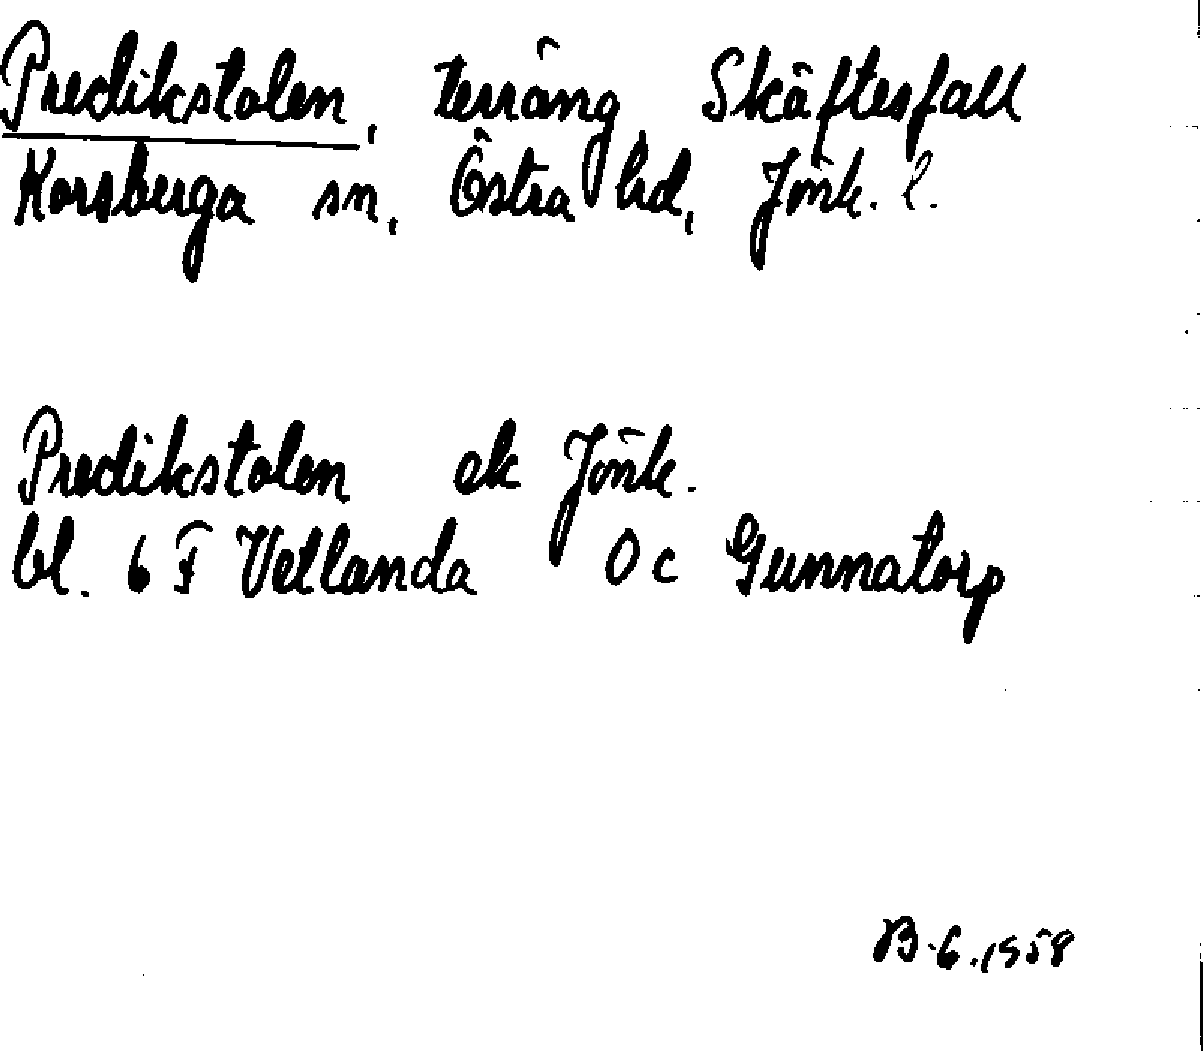 Predikstolen, terräng Skäftesfall
Korsberga sn, Östra hd, Jönk. l.
Predikstolen ek Jönk.
bl. 6 F Vetlanda 0 c Gunnatorp
B.6.1958